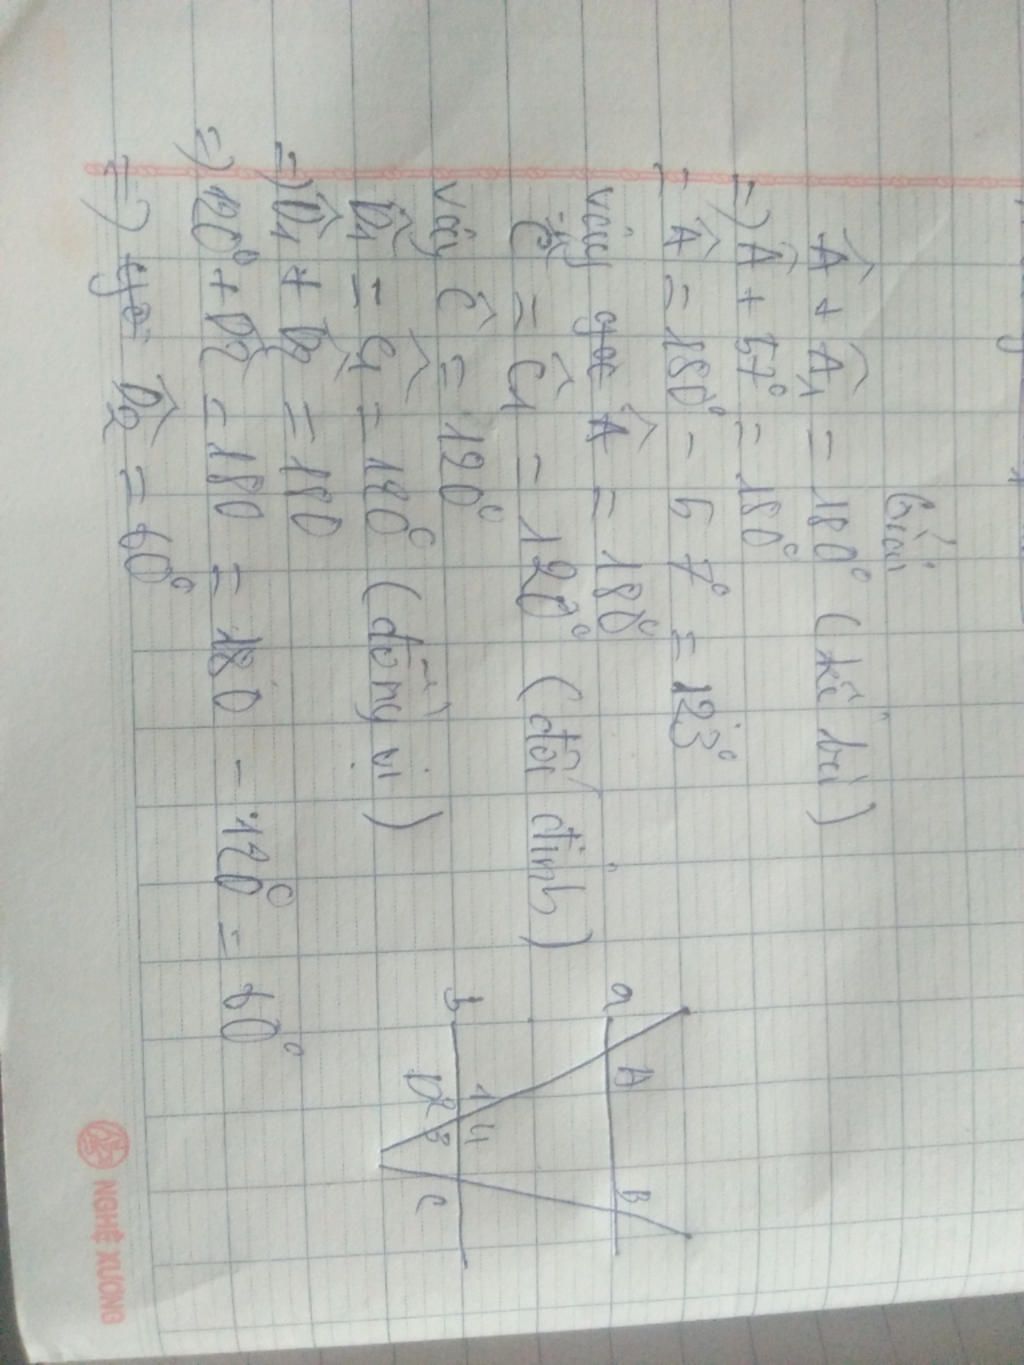 Giải
Â + Â1 = 180° (kề bù)
=) Â + 57° = 180°
= Â = 180° - 57° = 123°
vậy góc Â = 180°
Ĉ = Ĉ1 = 120° (đối đỉnh)
vậy Ĉ = 120°
D̂1 = Ĉ1 = 120° (đồng vị)
=) D̂1 + D̂2 = 180
=) 120° + D̂2 = 180 = 180 - 120° = 60°
=) D̂2 = 60°
a A B
b 1 4
D 2 3 C
NGHỆ XƯƠNG